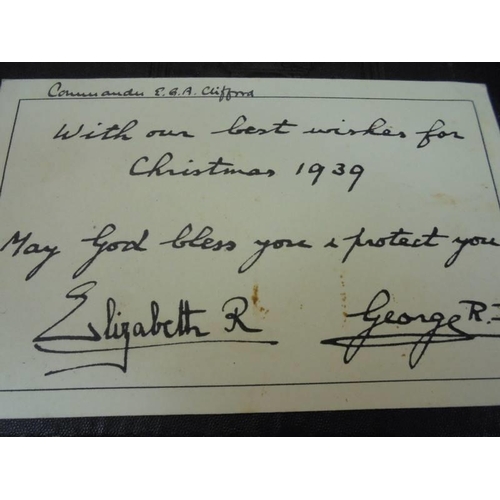 Commander E.G.A. Clifford
With our best wishes for
Christmas 1939
May God bless you & protect you
Elizabeth R George R.I